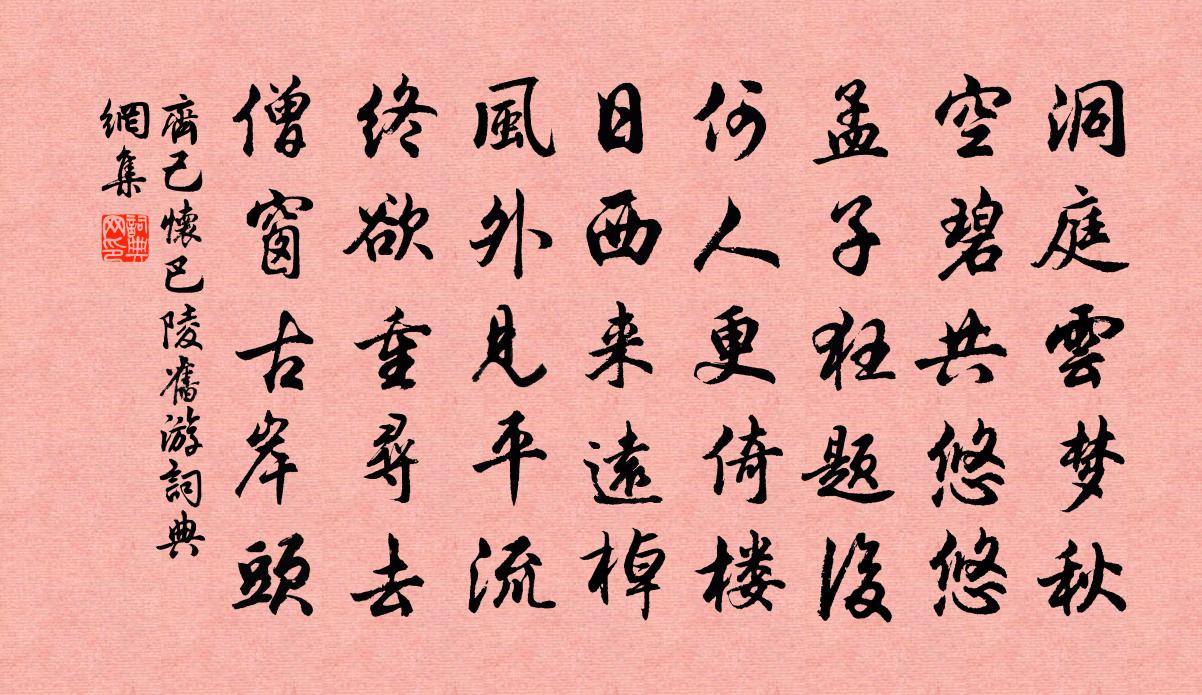 洞庭雲梦秋
空碧共悠悠
孟子狂题後
何人更倚楼
日西来遠棹
風外見平流
终欲重尋去
僧窗古岸頭
齊己懷巴陵舊游詞典
網集
詞典
网印